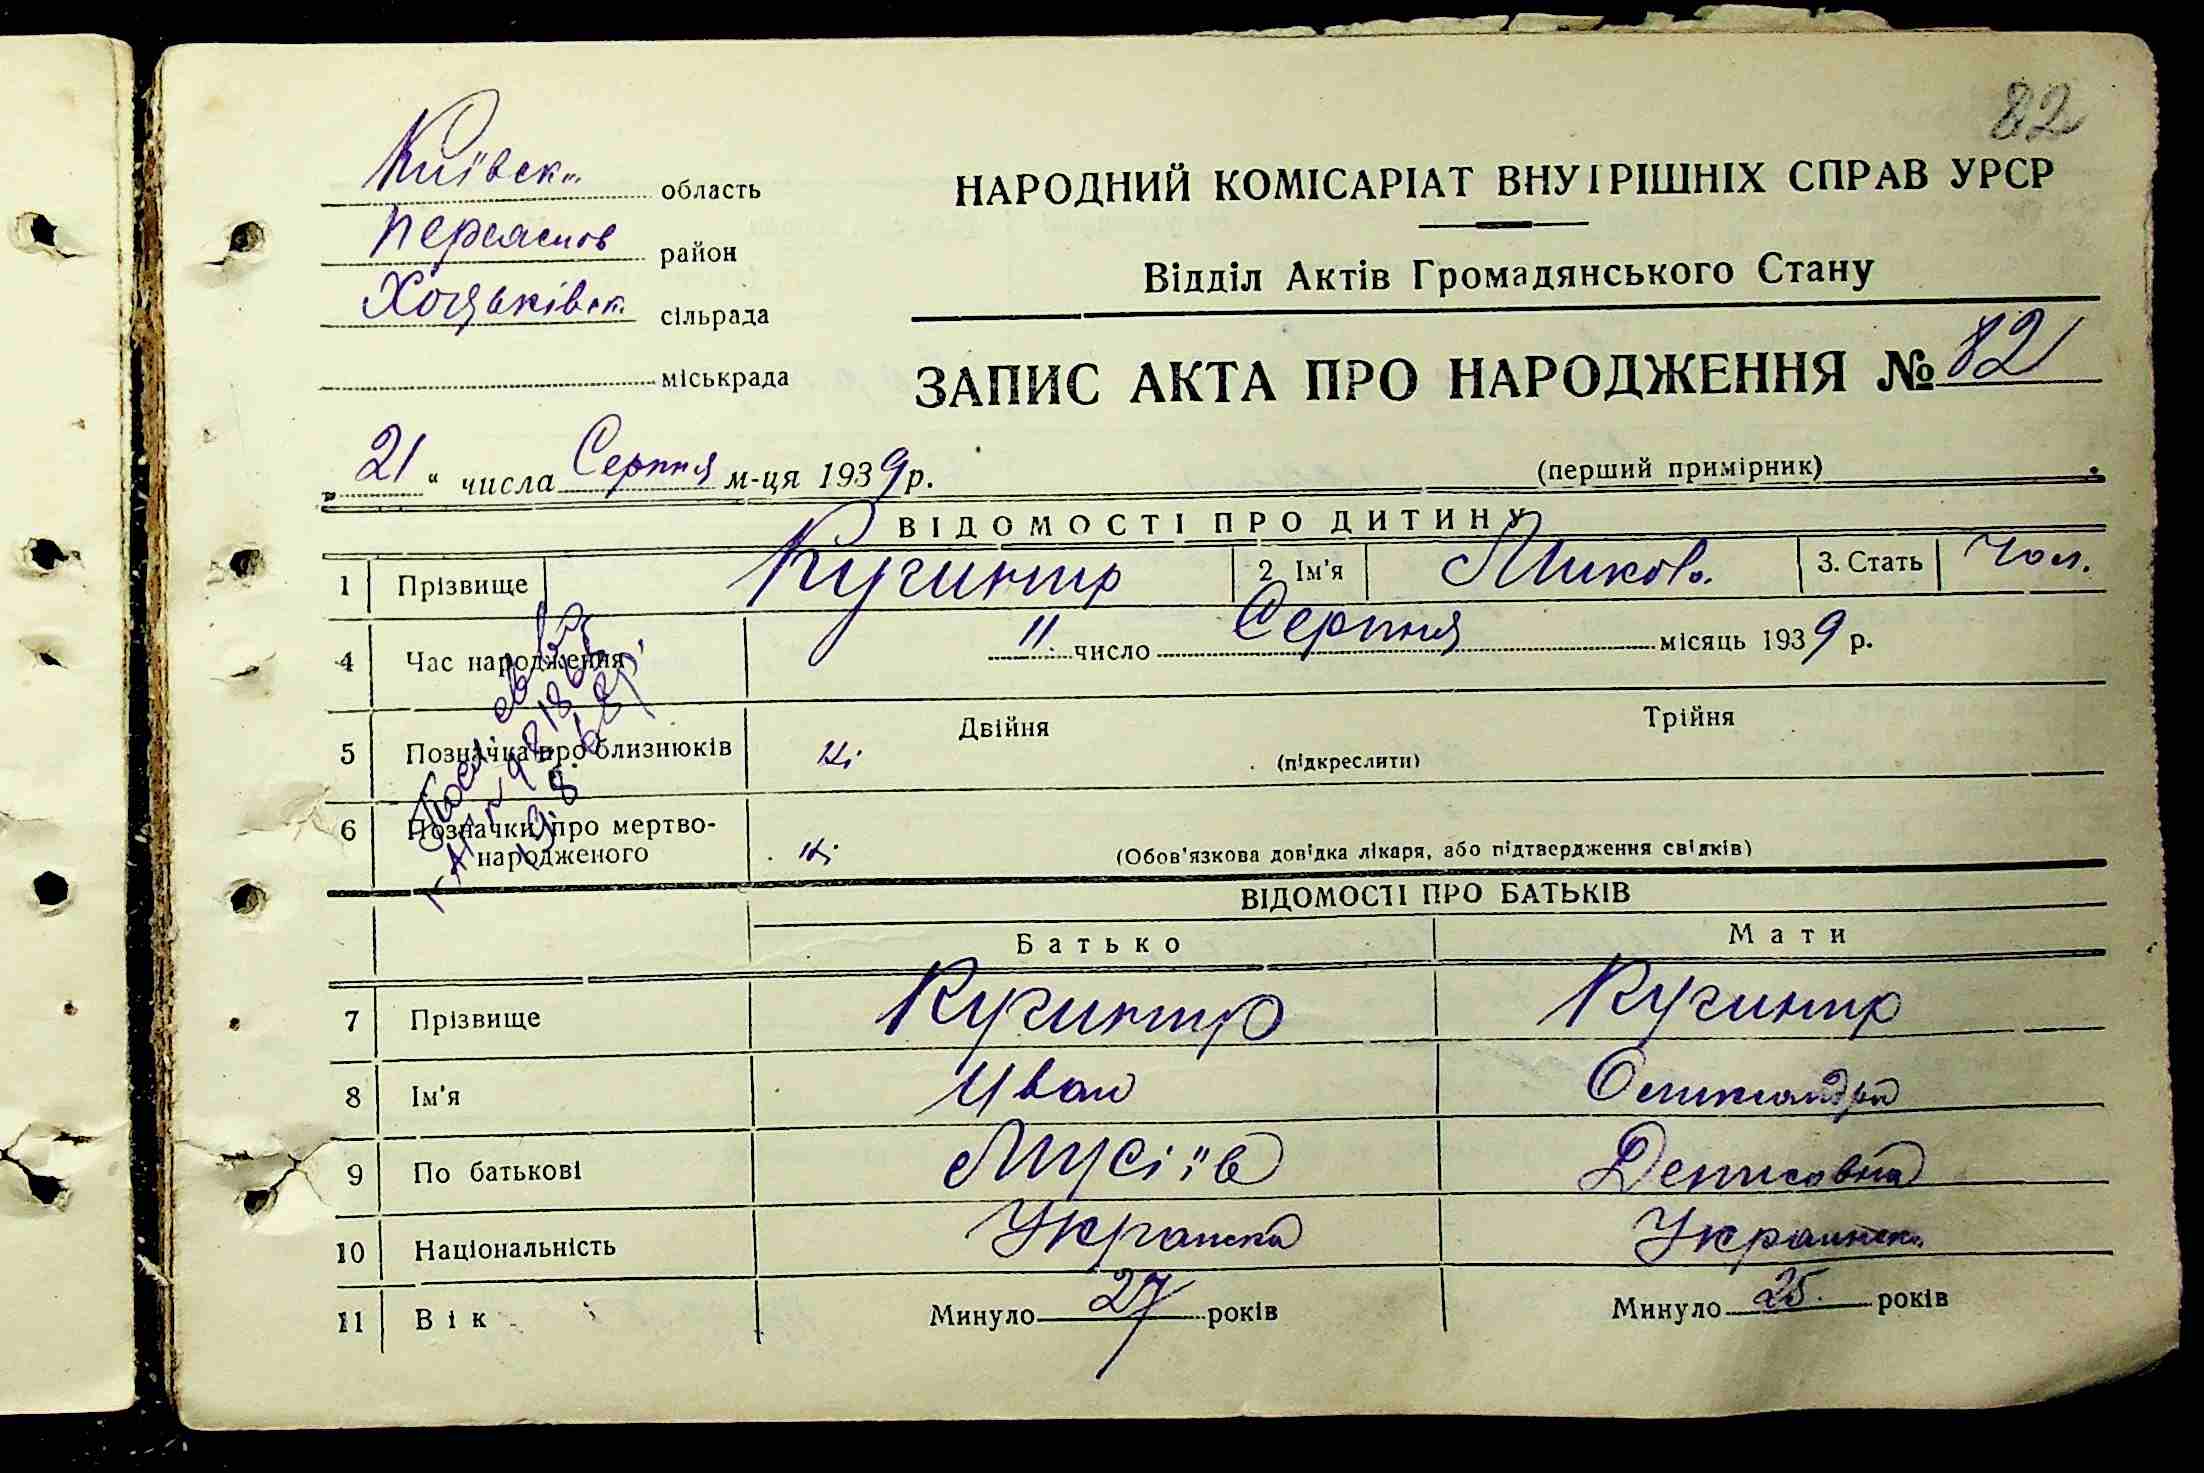 82
Київськ. область
НАРОДНИЙ КОМІСАРІАТ ВНУТРІШНІХ СПРАВ УРСР
Переяслов район
Відділ Актів Громадянського Стану
Хоцьківск. сільрада
міськрада
ЗАПИС АКТА ПРО НАРОДЖЕННЯ № 82
„ 21 “ числа Серпня м-ця 1939 р. (перший примірник)
ВІДОМОСТІ ПРО ДИТИНУ
1 Прізвище 2 Ім'я Микола 3. Стать Чол.
4 Час народження 11 число Серпня місяць 1939 р.
5 Позначка про близнюків Ні Двійня (підкреслити) Трійня
6 Позначки про мертвонародженого Ні (Обов'язкова довідка лікаря, або підтвердження свідків)
ВІДОМОСТІ ПРО БАТЬКІВ
Батько Мати
7 Прізвище
8 Ім'я Иван Олександра
9 По батькові Мусіїв Денисовна
10 Національність Украінск.
11 Вік Минуло 27 років Минуло 25. років